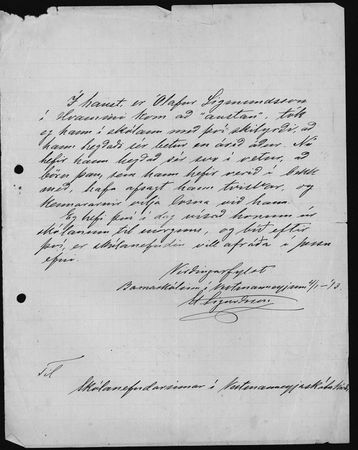 Í haust, er Ólafur Sigmundsson
í Hvammi kom að "austan", tók
eg hann í skólann með því skilyrði, að
hann hegðaði sér betur en árið áður. Nú
hefir hann hegðað sér svo í vetur, að
börn þau, sem hann hefir verið í bekk
með, hafa afsagt hann tvisvar, og
kennararnir vilja losna við hann.
Eg hefi því í dag vísað honum úr
skólanum til morguns, og bíð eftir
því, er skólanefndin vill afráða í þessu
efni.
Virðingarfylst
Barnaskólanum í Vestmannaeyjum 4/1-'13.
St. Sigurðsson.
Til
skólanefndarinnar í Vestmannaeyjaskólahéraði